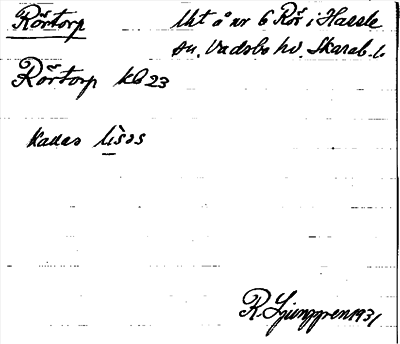 Rörtorp
Utt å nr 6 Rör i Hassle
sn. Vadsbo hd. Skarab. l.
Rörtorp kb 23
kallas lisas
R. Ljunggren 1931